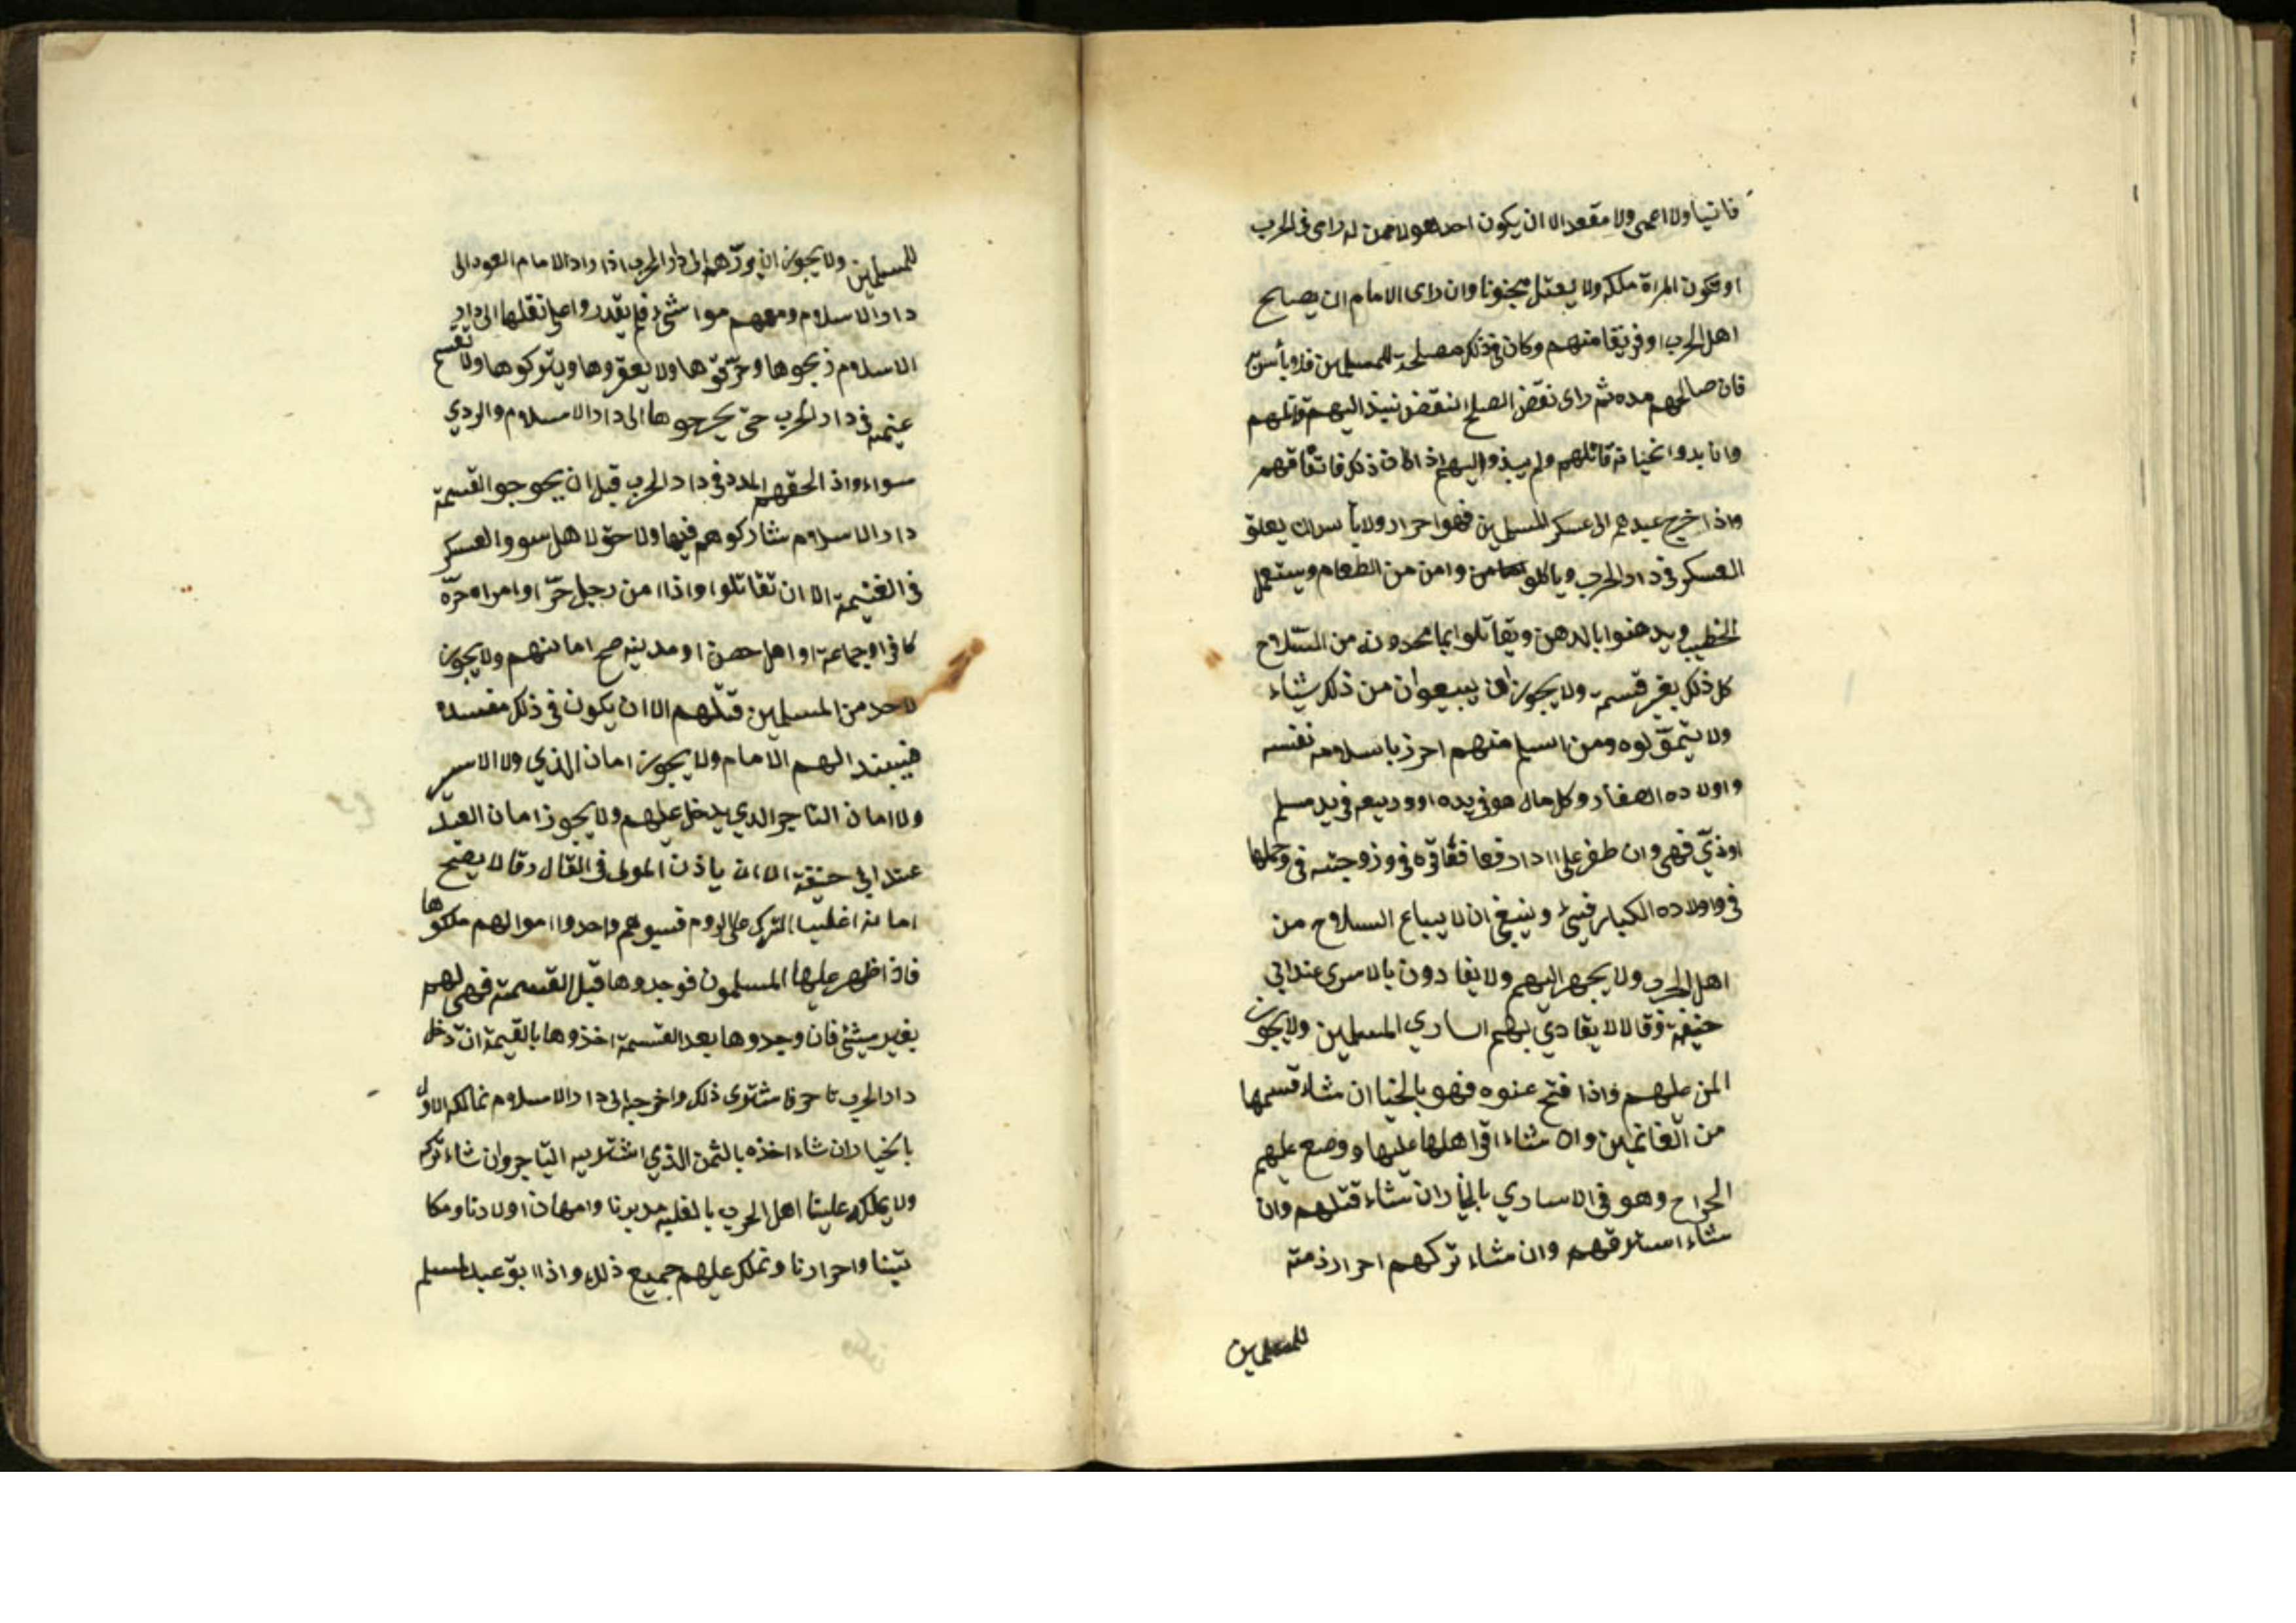 فانيا ولا اعمى ولا مقعد الا ان يكون احد هولا ممن له راى فى الحرب
او تكون المراة ملكه ولا يقتل مجنونا وان راى الامام ان يصالح
اهل الحرب او فريقا منهم وكان فى ذلك مصلحة للمسلمين فلا بأس
فان صالحهم مده ثم راى نقض الصلح انفض نبذ اليهم وقاتلهم
وان بدوا بخيانة قاتلهم ولم ينبذ واليهم اذا كان ذلك فاتفاقهم
واذا خرج عبيدهم الى عسكر المسلمين فهوا حرار ولا بأس ان يعلق
العسكر فى دار الحرب وياكلو من الطعام ويستعمل
الخطب ويدهنوا بالدهن ويقاتلوا بما يجدونه من السلاح
كل ذلك بغير قسمة ولا يجوز ان يبيعوان من ذلك شياء
ولا يتمولوه ومن اسلم منهم احرز باسلامه نفسه
واولاده الصغار وكل مال هو فى يده او وديعه فى يد مسلم
اوذمّي فهى وان ظفر على اادار فعاققاقره فى وزوجته فى وحملها
فى واولاده الكبار فيئ وينبغى ان لا يباع السلاح من
اهل الحرب ولا يجهر اليهم ولا يفادون بالاسرى عند ابى
حنيفة فقالا لا يفادي بهم اسارى المسلمين ولا يجوز
المن عليهم واذا فتح عنوه فهو بالخيا ان شاء قسمها
من الغانمين وان شاء اقراهلها عليها ووضع عليهم
الخراح وهو فى الاسارى بالخيار ان شاء قتلهم وان
شاء استرقهم وان شاء تركهم احرار ذمته
للمسلمين
للمسلمين ولا يجوز ان يردّهم الى دار الحرب اذا راد الامام العود الى
دار الاسلام ومعهم مواشى فلم يقدروا على نقلها الى دار
الاسلام ذبحوها وحرّقوها ولا يعقروها ويتركوها ولا تقسم
غنيمه فى دار الحرب حتى يخرجوها الى دار الاسلام والردي
سواء واذا لحقهم المدد فى دار الحرب قبل ان يخوجوا القسمة
دار الاسلام شاركوهم فيها ولا حق لاهل سوو العسكر
فى الغنيمة الا ان تقاتلوا واذا امن رجل حرّ او امراه حرّه
كافرا وجماعة او اهل حصن او مدينه صح امانهم ولا يجوز
لاحد من المسلمين قتلهم الا ان يكون فى ذلك مفسده
فيبند اليهم الامام ولا يجوز امان الذمي ولا الاسير
ولا امان التاجر الدي يدخل عليهم ولا يجوز امان العبد
عند ابي حنيفة الا ان ياذن المولى فى القتال وقالا يصح
امانه اغليب الترك على الروم فسبوهم واحدوا اموالهم ملكوها
فاذا ظهر عليها المسلمون فوجدوها قبل القسمة فهى لهم
بغير شئ فان وجدوها بعد القسمة اخذوها بالقيمة ان دخل
دار الحرب تاجر فاشترى ذلك واخرجه الى دار الاسلام فمالكه الاول
بالخيار ان شاء اخذه بالثمن الذي اشتر به التاجر وان شاء تركه
ولا يملك علينا اهل الحرب بالغلبه مدبرنا وامهات اولادنا ومكا
تبنا واحرارنا ونملك عليهم جميع ذلك واذا ابق عبد لمسلم